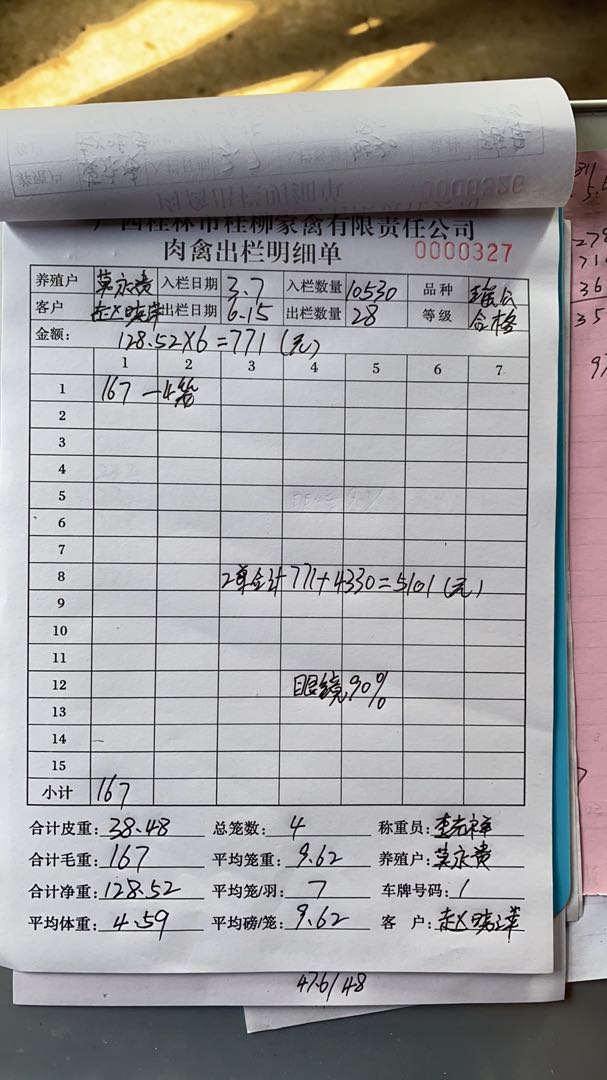 养殖户
0000326
肉禽出栏明细单
广西桂林市桂柳家禽有限责任公司
肉禽出栏明细单 0000327
养殖户 莫永贵 入栏日期 3.7 入栏数量 10530 品种
客户 出栏日期 6.15 出栏数量 28 等级 合格
金额: 128.52×6=771(元)
1 2 3 4 5 6 7
1 167 —4笼
2
3
4
5
6
7
8 2单合计771+4330=5101(元)
9
10
11
12 眼镜90%
13
14
15
小计 167
合计皮重: 38.48 总笼数: 4 称重员:
合计毛重: 167 平均笼重: 9.62 养殖户: 莫永贵
合计净重: 128.52 平均笼/羽: 7 车牌号码: 1
平均体重: 4.59 平均磅/笼: 9.62 客 户:
476/48